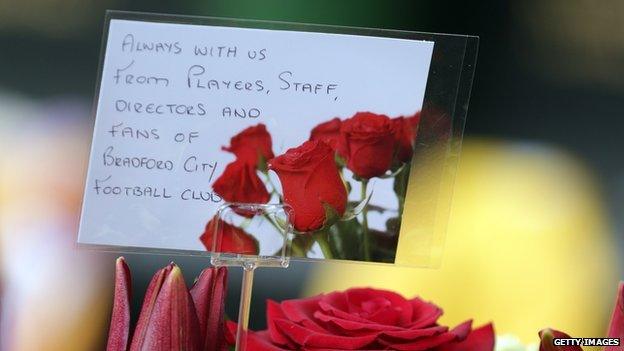 ALWAYS WITH US
FROM PLAYERS, STAFF,
DIRECTORS AND
FANS OF
BRADFORD CITY
FOOTBALL CLUB
GETTY IMAGES